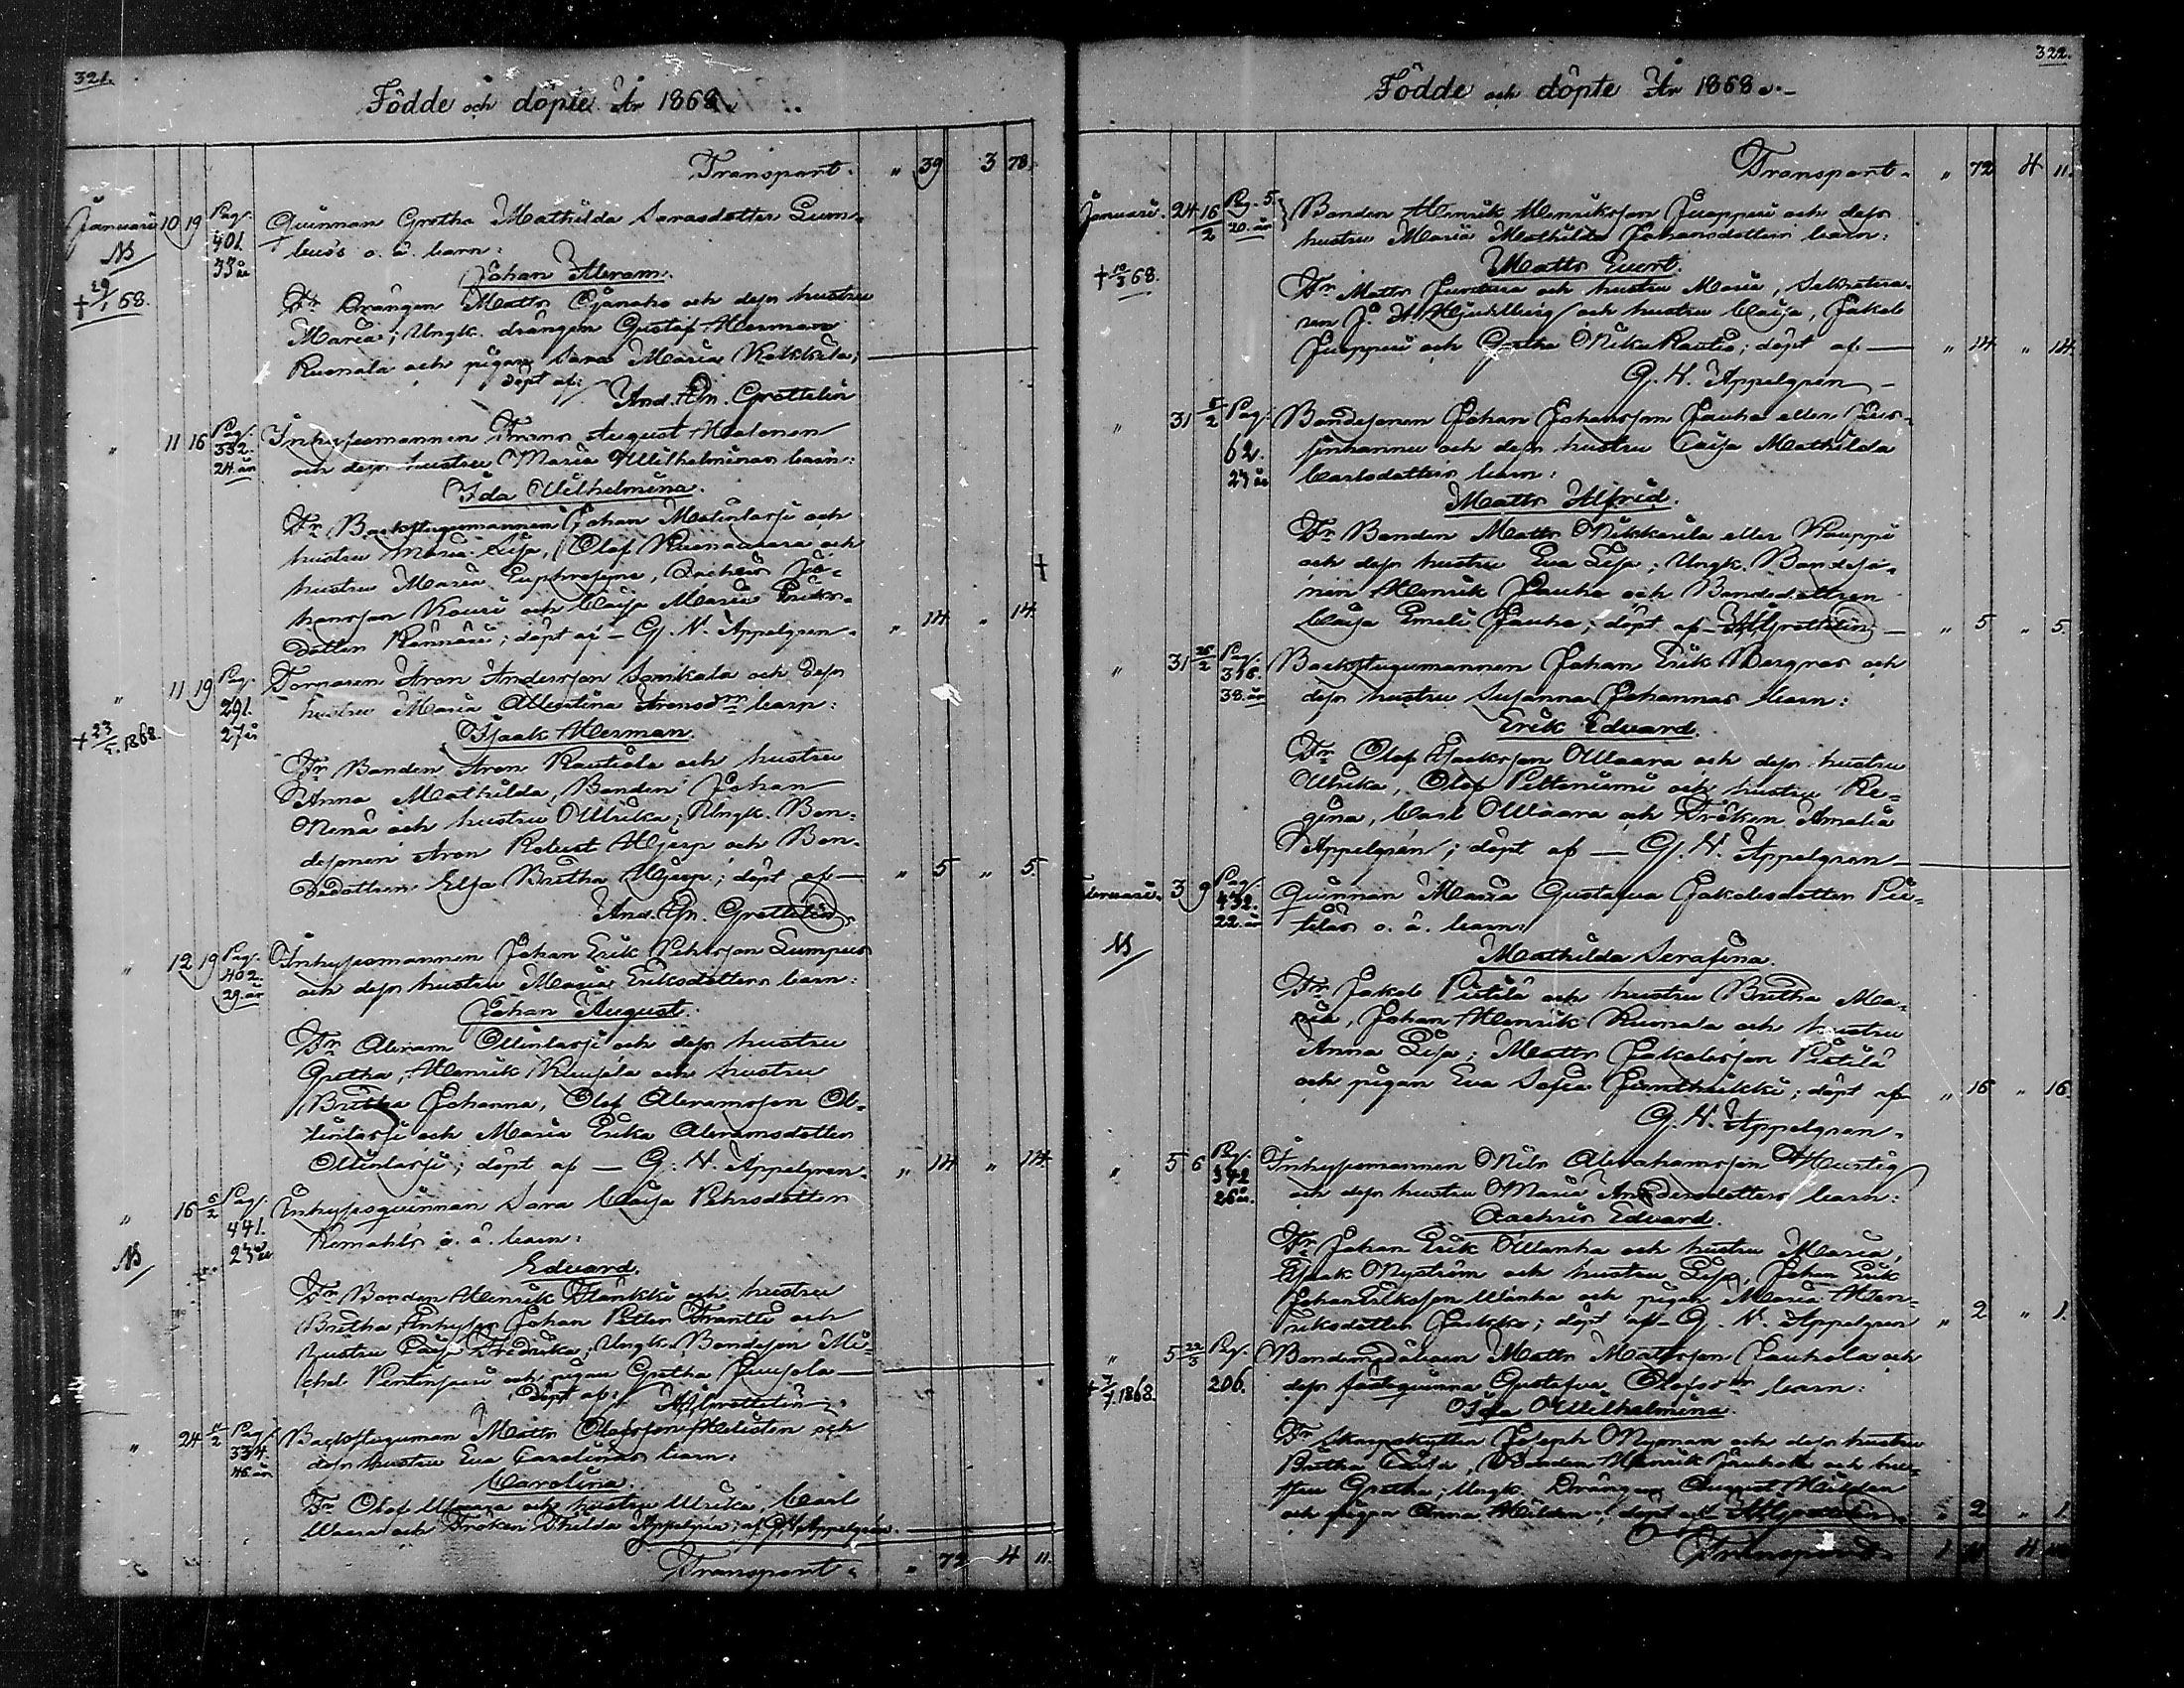 321.
Födde och döpte År 1868.
Transport. „ 39 3 78.
Januari 10 19 Pag. 401. 33 år Qvinnan Gretha Mathilda Sarasdotter
o. ä. barn:
+ 29/1 68.
Johan Abram.
Fr Drängen Matts och dess hustru
Maria; Ungk. drängen Gustaf Herman
Ruonala och pigan Sara Maria Kokkila;
döpt af:
And. Joh. Grettelin
„ 11 16 Pag. 332. 24 år Inhysesmannen Frans August Halonen
och dess hustru Maria Wilhelminas barn:
Ida Wilhelmina.
Fr Backstugumannen Johan och
hustru Maria Lisa, Olof Ruonavaara och
hustru Maria Euphrosyne, Zachris Jo-
hansson Kouri och Caisa Maria Eriks-
dotter döpt af – G. N. Appelgren. „ 14 „ 14
„ 11 19 Pag. 291. 27 år Torparen Aron Andersson och dess
hustru Maria Albertina Aronsdrs barn:
+ 23/5. 1868.
Isaak Herman.
Fr Bonden Aron Rautiola och hustru
Anna Mathilda, Bonden Johan
Nenä och hustru Ulrika; Ungk. Bon-
desonen Aron Robert Hjerp och Bon-
dedottern Elsa Britha Hjerp; döpt af — „ 5 „ 5.
And. Joh. Grettelin.
„ 12 19 Pag. 402 29 år Inhysesmannen Johan Erik Pehrsson Lumpus
och dess hustru Maria Eriksdotters barn:
Johan August.
Fr Abram Ollinlassi och dess hustru
Gretha, Henrik Kuusela och hustru
Britha Johanna, Olof Abramsson Ol-
linlassi och Maria Erika Abramsdotter
Ollinlassi; döpt af — G. N. Appelgren. „ 14 „ 14
„ 16 5/2 Pag. 441. Inhysesqvinnan Sara Caisa Pehrsdotter
o. ä. barn:
Edvard.
Fr Bonden Henrik Plankki och hustru
Britha, Inhyses Johan Petter Frantti och
hustru Caisa Fredrika; Ungk. Bondeson Mi-
chel och pigan Gretha Juusola
döpt af: AJGrettelin.
„ 24 Pag. 334. 45 år Backstuguman Matts Olofsson och
dess hustru Eva Carolinas barn:
Carolina.
Fr Olof Waara och hustru Ulrika, Carl
Waara och Fröken Thilda Appelgren; af GNAppelgren.
Transport. „ 72 4 11.
322.
Födde och döpte År 1868.
Transport. „ 72 4 11.
Januari. 24 16/2 Pag. 5. 20. år Bonden Henrik Henriksson Juopperi och dess
hustru Maria Mathilda Johansdotters barn:
Matts Evert.
Fr Matts Juntura och hustru Maria, Sekretera-
ren J. A. och hustru Caisa, Jakob
Juopperi och Gretha Nike Rautio; döpt af — „ 14 „ 14.
G. N. Appelgren
„ 31 5/2 Pag. 62. 27 år Bondesonen Johan Johansson Jauho eller
och dess hustru Caisa Mathilda
Carlsdotters barn:
Matts Alfrid.
Fr Bonden Matts eller Kauppi
och dess hustru Eva Lisa; Ungk. Bondeso-
nen Henrik Jauho och Bondedottren
Caisa Emeli Jauho; döpt af – AJGrettelin — „ 5 „ 5.
„ 31 Pag. 316. 38. år Backstugumannen Johan Erik Bergnas och
dess hustru Susanna Johannas barn:
Erik Edvard.
Fr Olof Isaksson Waara och dess hustru
Ulrika, Olof Peltoniemi och hustru Re-
gina, Carl Waara och Fröken Amalia
Appelgren; döpt af — G. N. Appelgren
Februari. 3 9 Pag. 432. 22. år Qvinnan Maria Gustafva Jakobsdotter Pie-
tiläs o. ä. barn:
Mathilda Serafina.
Fr Jakob Pietilä och hustru Britha Ma-
ria, Johan Henrik Ruonala och hustru
Anna Lisa; Matts Jakobsson Pietilä
och pigan Eva Sofia döpt af „ 16 „ 16.
G. N. Appelgren.
„ 5 6 Pag. 342 26 år. Inhysesmannen Nils Abrahamsson Hurtig
och dess hustru Maria Andersdotters barn:
Zachris Edvard.
Fr Johan Erik Wanha och hustru Maria,
Isaak Nyström och hustru Lisa, Johan Erik
Johan Eriksson Wanha och pigan Maria Hen-
riksdotter Jaakko; döpt af G. N. Appelgren „ 2 „ 1.
„ 5 Pag. 206. Matts Mattsson Jauhola och
dess fästeqvinna Gustafva Olofsdrs barn:
1868.
Ida Wilhelmina.
Fr Skarpskytten Joseph Nyman och dess hustru
Britha Caisa, Bonden Henrik Jauhola och hus-
tru Gretha; Ungk. Drängen August Hilden
och pigan Anna Hilden; döpt af AJGrettelin. „ 2 „ 1.
Transport.